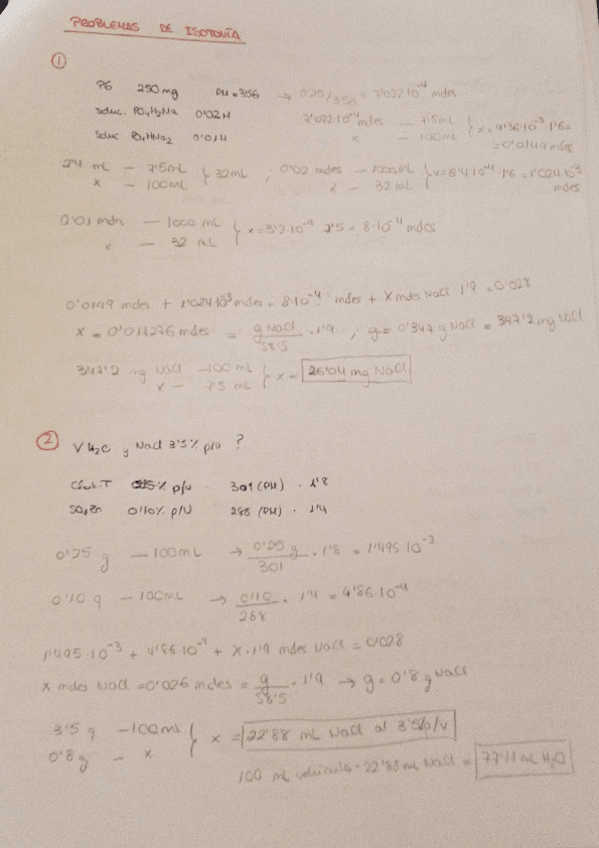 PROBLEMAS DE ISOTONÍA
①
P6 250mg PM = 356 → 0'25/356 = 7'022·10⁻⁴ moles
Soluc. PO₄H₂Na 0'02M 7'022·10⁻⁴ moles — 7'5mL
Soluc PO₄HNa₂ 0'01M x — 100mL } x = 9'36·10⁻³·1'6 = 0'0149 moles
2'4 mL — 7'5mL
x — 100mL } 32mL ; 0'02 moles — 1000mL
x — 32 mL } x = 6'4·10⁻⁴·1'6 = 1'024·10⁻³ moles
0'01 moles — 1000 mL
x — 32 mL } x = 3'2·10⁻⁴ 2'5 = 8·10⁻⁴ moles
0'0149 moles + 1'024·10⁻³ moles + 8·10⁻⁴ moles + X moles NaCl 1'9 = 0'028
X = 0'011276 moles = g NaCl/58'5 · 1'9 ; g = 0'347 g NaCl = 347'2 mg NaCl
347'2 mg NaCl — 100 mL
x — 7'5 mL } x = 26'04 mg NaCl
② V H₂O y NaCl 3'5% p/v ?
0'25% p/v 301 (PM) · 1'8
SO₄Zn 0'10% p/V 288 (PM) · 1'4
0'25 g — 100mL → 0'25 g/301 · 1'8 = 1'495 10⁻³
0'10 g — 100mL → 0'10/288 · 1'4 = 4'86·10⁻⁴
1'495·10⁻³ + 4'86·10⁻⁴ + X·1'9 moles NaCl = 0'028
x moles NaCl = 0'026 moles = g/58'5 · 1'9 → g = 0'8 g NaCl
3'5 g — 100mL
0'8 g — x } x = 22'88 mL NaCl al 3'5% p/v
100 mL vehículo - 22'88 mL NaCl = 77'11 mL H₂O